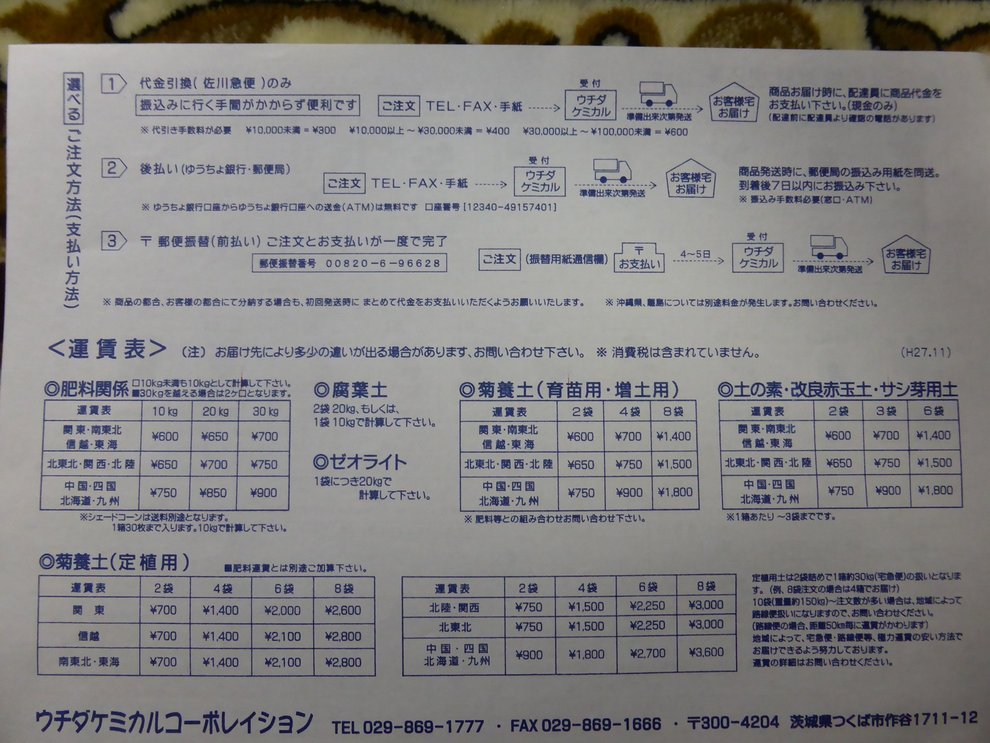 選べるご注文方法(支払い方法)
1 代金引換(佐川急便)のみ
振込みに行く手間がかからず便利です
ご注文 TEL・FAX・手紙 受付 ウチダケミカル 準備出来次第発送 お客様宅お届け
商品お届け時に、配達員に商品代金を
お支払い下さい。(現金のみ)
(配達前に配達員より確認の電話があります)
※ 代引き手数料が必要 ¥10,000未満=¥300 ¥10,000以上~¥30,000未満=¥400 ¥30,000以上~¥100,000未満=¥600
2 後払い(ゆうちょ銀行・郵便局)
ご注文 TEL・FAX・手紙 受付 ウチダケミカル 準備出来次第発送 お客様宅お届け
商品発送時に、郵便局の振込み用紙を同送。
到着後7日以内にお振込み下さい。
※ 振込み手数料必要(窓口・ATM)
※ ゆうちょ銀行口座からゆうちょ銀行口座への送金(ATM)は無料です 口座番号[12340-49157401]
3 〒郵便振替(前払い)ご注文とお支払いが一度で完了
郵便振替番号 00820-6-96628
ご注文 (振替用紙通信欄) 〒お支払い 4~5日 受付 ウチダケミカル 準備出来次第発送 お客様宅お届け
※ 商品の都合、お客様の都合にて分納する場合も、初回発送時に まとめて代金をお支払いいただくようお願いいたします。 ※ 沖縄県、離島については別途料金が発生します。お問い合わせください。
<運賃表> (注) お届け先により多少の違いが出る場合があります、お問い合わせ下さい。 ※ 消費税は含まれていません。 (H27.11)
◎肥料関係 □10kg未満も10kgとして計算して下さい。
■30kgを越える場合は2ヶ口となります。
運賃表 10kg 20kg 30kg
関東・南東北 信越・東海 ¥600 ¥650 ¥700
北東北・関西・北陸 ¥650 ¥700 ¥750
中国・四国 北海道・九州 ¥750 ¥850 ¥900
※シェードコーンは送料別途となります。
1箱30枚まで入ります。10kgで計算して下さい。
◎腐葉土
2袋20kg、もしくは、
1袋10kgで計算して下さい。
◎ゼオライト
1袋につき20kgで
計算して下さい。
◎菊養土(育苗用・増土用)
運賃表 2袋 4袋 8袋
関東・南東北 信越・東海 ¥600 ¥700 ¥1,400
北東北・関西・北陸 ¥650 ¥750 ¥1,500
中国・四国 北海道・九州 ¥750 ¥900 ¥1,800
※ 肥料等との組み合わせお問い合わせ下さい。
◎土の素・改良赤玉土・サシ芽用土
運賃表 2袋 3袋 6袋
関東・南東北 信越・東海 ¥600 ¥700 ¥1,400
北東北・関西・北陸 ¥650 ¥750 ¥1,500
中国・四国 北海道・九州 ¥750 ¥900 ¥1,800
※1箱あたり ~3袋までです。
◎菊養土(定植用) ■肥料運賃とは別途ご加算下さい。
運賃表 2袋 4袋 6袋 8袋
関東 ¥700 ¥1,400 ¥2,000 ¥2,600
信越 ¥700 ¥1,400 ¥2,100 ¥2,800
南東北・東海 ¥700 ¥1,400 ¥2,100 ¥2,800
運賃表 2袋 4袋 6袋 8袋
北陸・関西 ¥750 ¥1,500 ¥2,250 ¥3,000
北東北 ¥750 ¥1,500 ¥2,250 ¥3,000
中国・四国 北海道・九州 ¥900 ¥1,800 ¥2,700 ¥3,600
定植用土は2袋詰めで1箱約30kg(宅急便)の扱いとなりま
す。(例、8袋注文の場合は4箱でお届け)
10袋(重量約150kg)~注文数が多い場合は、地域によって
路線便扱いになりますので、お問い合わせ下さい。
(路線便の場合、距離50km毎に運賃がかわります)
地域によって、宅急便・路線便等、極力運賃の安い方法で
お届けできるよう努力しております。
運賃の詳細はお問い合わせ下さい。
ウチダケミカルコーポレイション TEL 029-869-1777 ・ FAX 029-869-1666 ・ 〒300-4204 茨城県つくば市作谷1711-12